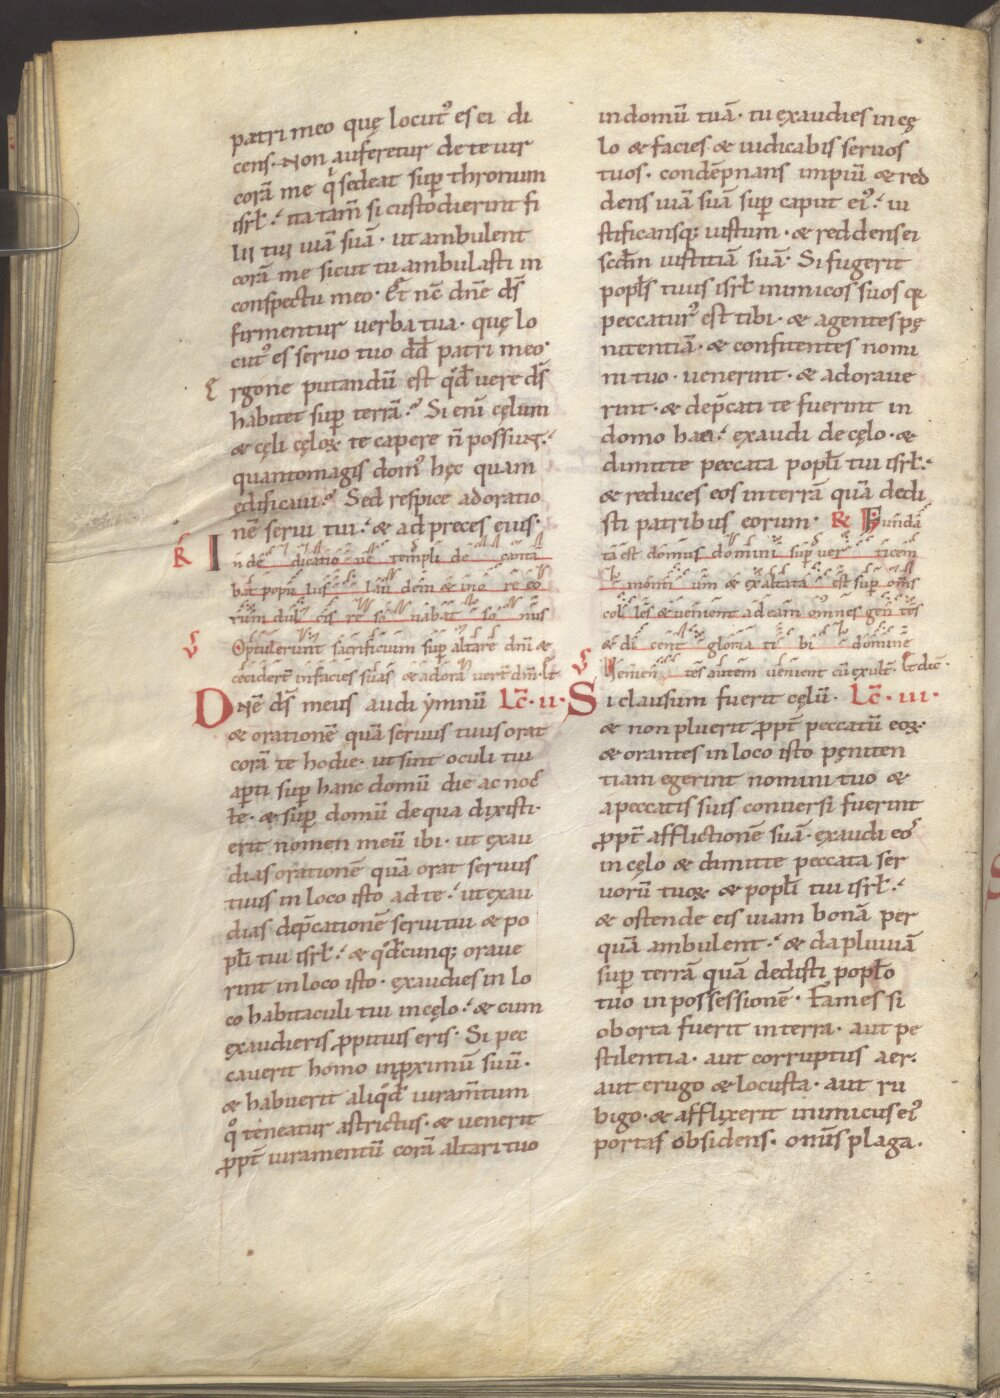 patri meo quę locut᾽ es ei di
cens. Non auferetur de te uir
corā me q̇ sedeat sup̄ thronum
isrł. ita tam̄ si custodierint fi
lii tui uiā suā. ut ambulent
corā me sicut tu ambulasti in
conspectu meo. Et nc̄ dn̄e ds̄
firmentur uerba tua. quę lo
cut᾽ es seruo tuo dd̄ patri meo.
Ergone putandū est qd̄ uere ds̄
habitet sup̄ terrā. Si enī cęlum
& cęli cęloꝝ te capere n̄ possunt.
quantomagis dom᾽ hęc quam
edificaui. Sed respice ad oratio
nē serui tui. & ad preces eius.
R̄ In dedicatione templi decanta
bat popul᾽ laudem & in ore eo
rum dulcis resonabat sonus
V̄ Optulerunt sacrificium sup̄ altare dn̄i &
ceciderēt in facies suas & adorauer̄t dn̄m. Et
Dn̄e ds̄ meus audi ymnū Lc̄. II.
& orationē quā seruus tuus orat
corā te hodie. ut sint oculi tui
ap̄ti sup̄ hanc domū die ac noc
te. & sup̄ domū de qua dixisti.
erit nomen meū ibi. ut exau
dias orationē quā orat seruus
tuus in loco isto ad te. ut exau
dias dep̄cationē serui tui & po
pl̄i tui isrł. & qd̄cunq; oraue
rint in loco isto. ęxaudies in lo
co habitaculi tui in cęlo. & cum
ęxaudieris ꝓpitius eris. Si pec
cauerit homo in ꝓximū suū.
& habuerit aliqd̄ iuram̄tum
q᾽ teneatur astrictus. & uenerit
ꝓpt̄ iuramentū corā altari tuo
in domū tuā. tu ęxaudies in cę
lo & facies & iudicabis seruos
tuos. condēpnans impiū & red
dens uiā suā sup̄ caput ei᾽. iu
stificansq; iustum. & reddens ei
scd̄m iustitiā suā. Si fugerit
popl̄s tuus isrł inimicos suos q̇
peccatur᾽ est tibi. & agentes pę
nitentiā. & confitentes nomi
ni tuo. uenerint. & adoraue
rint. & dep̄cati te fuerint in
domo hac. ęxaudi de cęlo. &
dimitte peccata popl̄i tui isrł.
& reduces eos in terrā quā dedi
sti patribus eorum. R̄ Fundā
ta est domus domini sup̄ uerticem
montium & exaltata est sup̄ om̄s
colles & uenient ad eam omnes gentes
& dicent gloria tibi domine
V̄ Venientes autem uenient cū exult̄. Et dic̄.
Si clausum fuerit cęlū. Lc̄. III.
& non pluerit ꝓpt̄ peccatū eoꝝ.
& orantes in loco isto pęniten
tiam egerint nomini tuo &
a peccatis suis conuersi fuerint
ꝓpt̄ afflictionē suā. ęxaudi eos
in cęlo & dimitte peccata ser
uorū tuoꝝ & popl̄i tui isrł.
& ostende eis uiam bonā per
quā ambulent. & da pluuiā
sup̄ terrā quā dedisti popl̄o
tuo in possessionē. Fames si
oborta fuerit in terra. aut pe
stilentia. aut corruptus aer.
aut erugo & locusta. aut ru
bigo. & afflixerit inimicus ei᾽
portas obsidens. om̄is plaga.